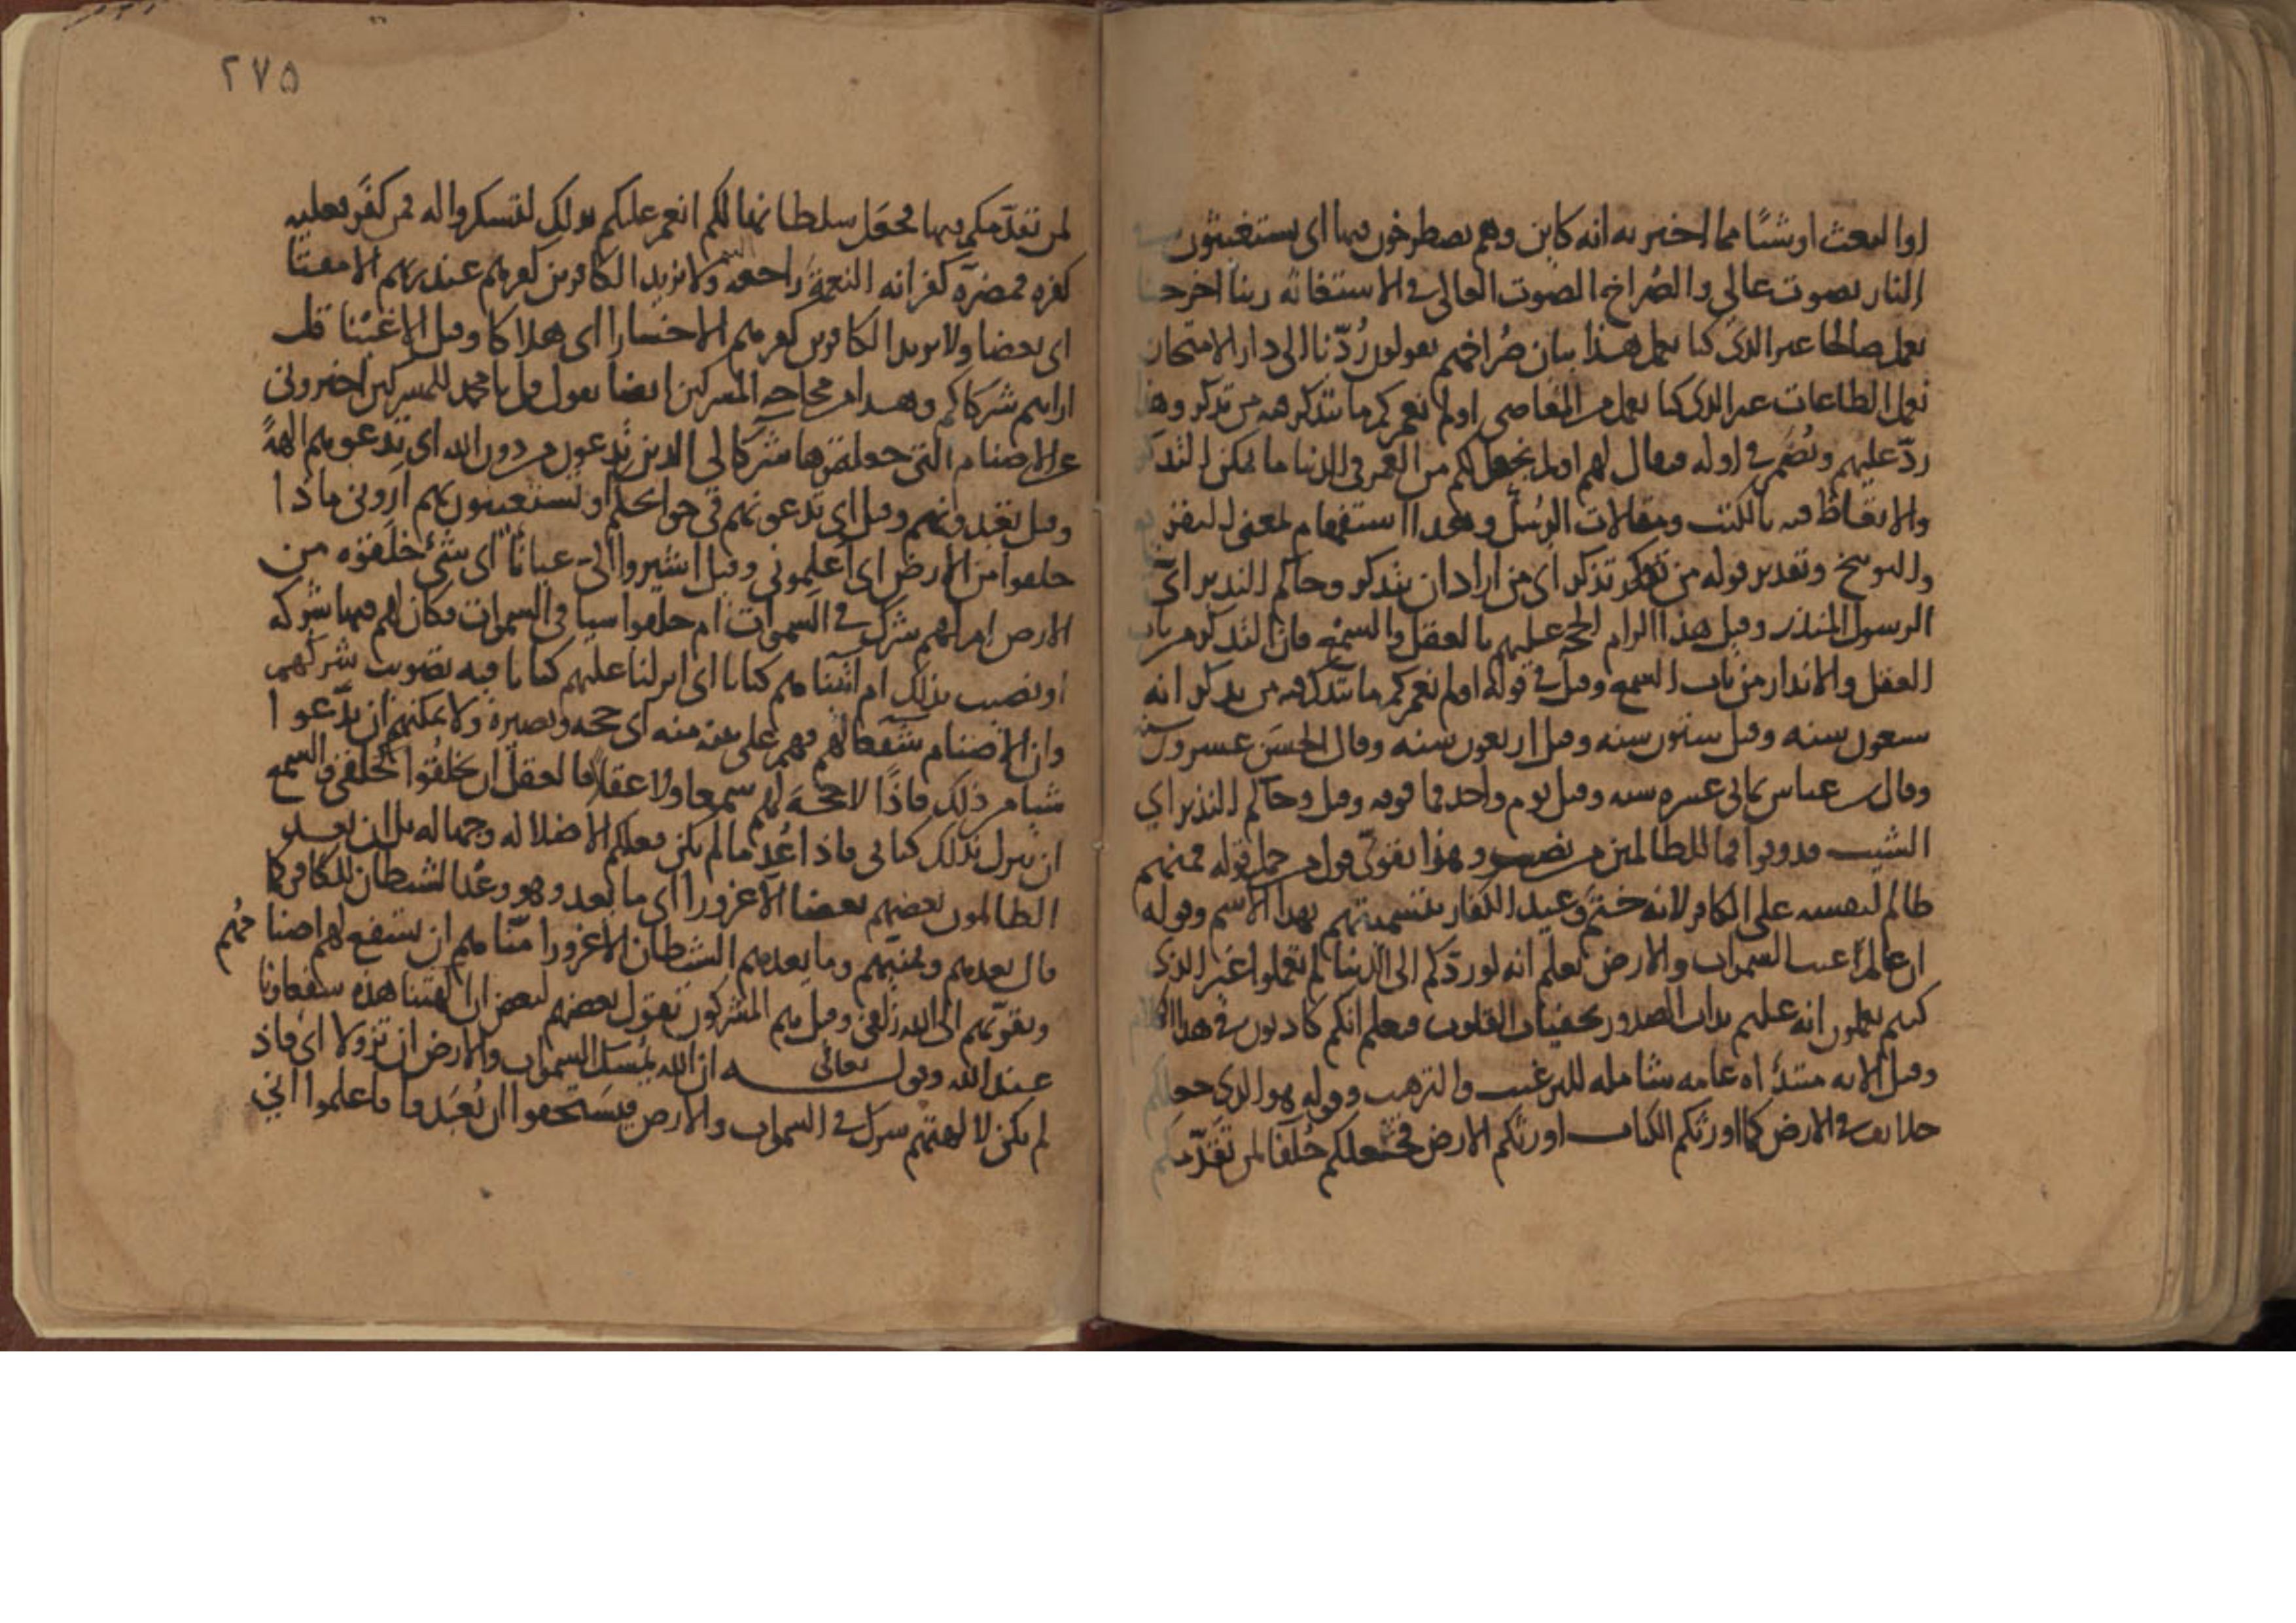 او البعث او شيئا مما اخبر به انه كاين وهم يصطرخون فيها اى يستغيثون
النار بصوت عالى والصُراخ الصوت العالى فى الاستغاثه ربنا اخرجنا
نعمل صالحا غير الذى كنا نعمل هذا بيان صُراخهم يقولون رُدّنا الى دار الامتحان
نعمل الطاعات غير الذى كنا نعمل من المعاصى اولم نعمركم ما يتذكر فيه من تذكر وهذا
ردّ عليهم ويُضمر فى اوله فيقال لهم اولم نجعل لكم من العمر فى الدنيا ما يمكن التذكر
والاتعاظ فيه بالكتب ومقالات الرسُل وهذا استفهام لمعنى التقرير
والتوبيخ وتقدير قوله من تذكر اى من اراد ان يتذكر وجاكم النذير اى
الرسول المنذر وقيل هذا الزام الحجة عليهم بالعقل والسمع فان التذكر من باب
العقل والانذار من باب السمع وقيل فى قوله اولم نعمركم ما يتذكر فيه من تذكر انه
سبعون سنه وقيل ستون سنه وقيل اربعون سنه وقال الحسَن عشرون سنه
وقال ابن عباس ثمانى عشره سنه وقيل يوم واحد فما فوقه وقيل وجاكم النذير اي
الشيب فذوقوا فما للظالمين من نصير وهذا يقوّى قول من حمل قوله فمنهم
ظالم لنفسه على الكافر لانه ختم وعيد الكفار بتسميتهم بهذا الاسم وقوله
ان الله عالم غيب السموات والارض يعلم انه لو ردّكم الى الدنيا لم تعملوا غير الذى
كنتم تعملون انه عليم بذات الصدور بخفيات القلوب فيعلم انكم كاذبون فى هذا الكلام
وقيل الايه مبتدأه عامه شامله للترغيب والترهيب وقوله هو الذى جعلكم
خلايف فى الارض كما اورثكم الكتاب اورثكم الارض فجعلكم خُلَفا لمن تقدّمكم
لمن تقدّمكم فيها فجعَل سلطانها لكم انعم عليكم بذلك لتشكروا له فمن كفَر فعليه
كفره فمضرّه كفرانه النعمة راجعه ولا يزيد الكافرين كفرهم عند ربهم الا مقتًا
اى بغضا ولا يزيد الكافرين كفرهم الا خسارا اى هلاكا وقيل الا غَبْنا قل
ارايتم شركاكم وهذا من محاجه المشركين ايضا يقول قل يا محمد للمشركين اخبرونى
عن الاصنام التى جعلتموها شركا لى الذين تدعون من دون الله اى تدعونهم الهةً
وقيل تعبدونهم وقيل اى تدعونهم فى حوايجكم او تستغيثون بهم ارونى ماذا
خلقوا من الارض اى اعلمونى وقيل اشيروا الىّ عيانًا اى شئ خلقوه من
الارض ام لهم شرك فى السموات ام خلقوا شيا فى السموات فكان لهم فيها شركه
او نصيب بذلك ام اتيناهم كتابا اى انزلنا عليهم كتابا فيه تصويب شركهم
وان الاصنام شفعا لهم فهم على بينه منه اى حجه وبصيره ولا يمكنهم ان يدّعوا
شيا من ذلك فاذًا لا حجّه لهم سمعا ولا عقلا فالعقل ان يخلقوا كخلقى والسمع
ان ينزل بذلك كتابى فاذا عُدما لم يكن فعلكم الا ضلاله وجهاله بل ان يعد
الظالمون بعضهم بعضا الا غرورا اى ما يعد وهو وعْد الشيطان للكافر كما
قال يعدهم ويمنيهم وما يعدهم الشيطان الا غرورا منّاهم ان يشفع لهم اصنامُهم
ويقرّبهم الى الله زلفى وقيل هم المشركون يقول بعضهم لبعض ان الهتنا هذه شفعاونا
عند الله وقولـه تعالى ان الله يمُسك السموات والارض ان تزولا اى فاذ
لم يكن لالهتهم شرك فى السموات والارض فيستحقوا ان تُعبَد فما فاعلموا انى
٢٧٥